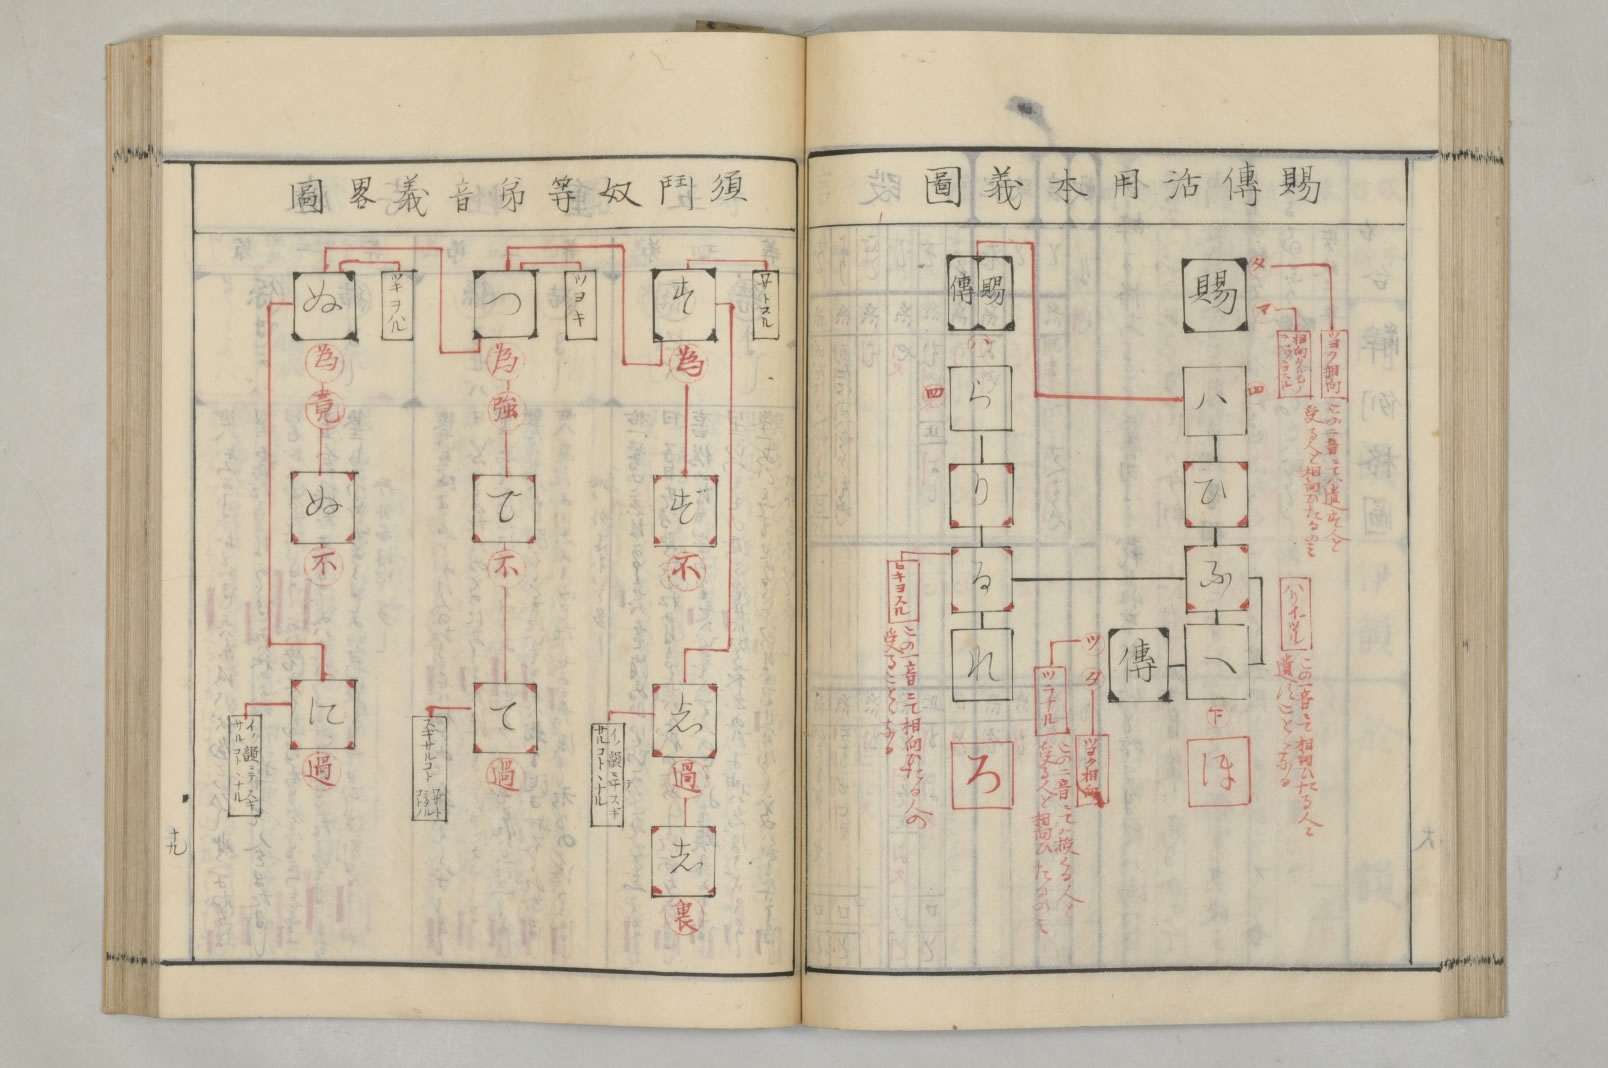 賜傳活用本義圖
賜
タ
マ
ツヨク相向
この二音にてハ遣す人と
受る人と相向ひたるのミ
四
ハ
ひ
ふ
へ
下
ほ
ハリイーツル
この一音にて相向ひたる人に
遣ハすことゝなる
傳
ツ
タ
ツラナル
ツヨク相向
この二音にてハ授くる人と
受る人と相向ひたるのミ
賜傳
ハ
四
ら
り
る
れ
ろ
ヒキヨスル
この一音にて相向ひたる人の
受ることゝなる
須鬥奴等弟音義畧圖
ワザトスル
す
為
ず
不
し
過
し
裏
イノ韻ニテスギ
サルコトヽナル
ツヨキ
つ
為
強
で
不
て
過
スギサルコト
ツギヲハル
ぬ
為
竟
ぬ
不
に
過
イノ韻ニテスギ
サルコトヽナル
十九